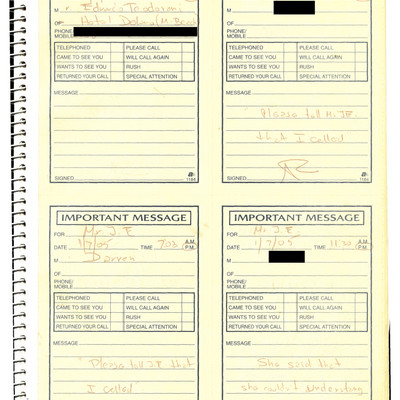 OF
PHONE/
MOBILE
TELEPHONED PLEASE CALL
CAME TO SEE YOU WILL CALL AGAIN
WANTS TO SEE YOU RUSH
RETURNED YOUR CALL SPECIAL ATTENTION
MESSAGE
SIGNED 1184
M
OF
PHONE/
MOBILE
TELEPHONED PLEASE CALL
CAME TO SEE YOU WILL CALL AGAIN
WANTS TO SEE YOU RUSH
RETURNED YOUR CALL SPECIAL ATTENTION
MESSAGE
Please tell Mr. JE
that I called
SIGNED 1184
IMPORTANT MESSAGE
FOR Mr. J.E
DATE 1/7/05 TIME 7:03 A.M. P.M.
M Darren
OF
PHONE/
MOBILE
TELEPHONED PLEASE CALL
CAME TO SEE YOU WILL CALL AGAIN
WANTS TO SEE YOU RUSH
RETURNED YOUR CALL SPECIAL ATTENTION
MESSAGE
"Please tell J.E that
I called"
IMPORTANT MESSAGE
FOR Mr. J.E
DATE 1/7/05 TIME 11:30 A.M. P.M.
M
OF
PHONE/
MOBILE
TELEPHONED PLEASE CALL
CAME TO SEE YOU WILL CALL AGAIN
WANTS TO SEE YOU RUSH
RETURNED YOUR CALL SPECIAL ATTENTION
MESSAGE
She said that
she